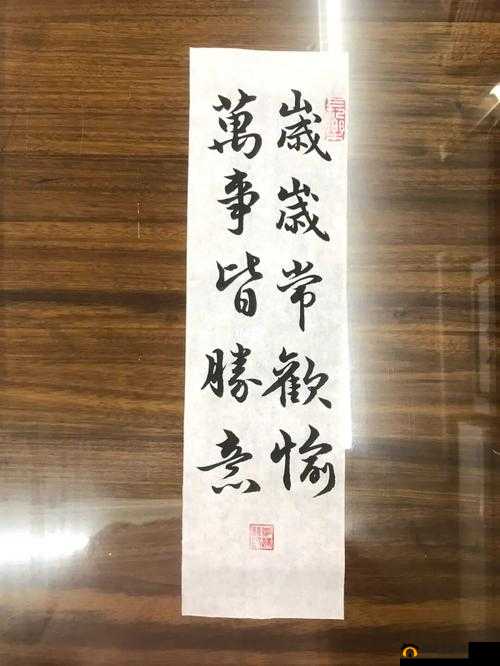 歲歲常歡愉
萬事皆勝意